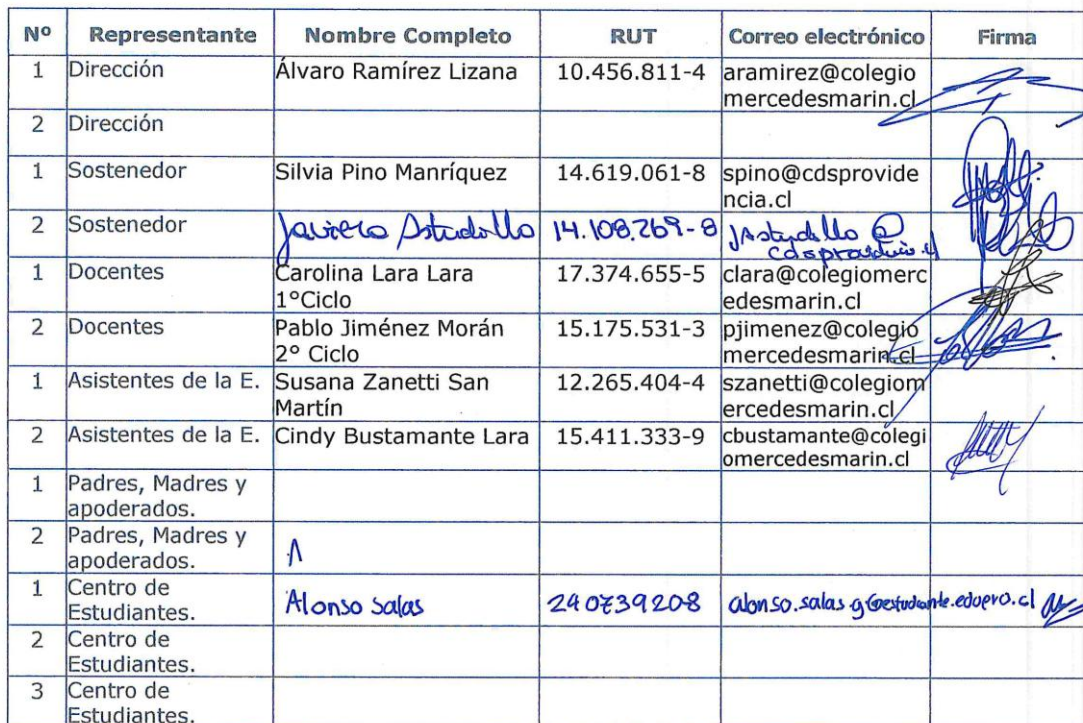 Nº Representante Nombre Completo RUT Correo electrónico Firma
1 Dirección Álvaro Ramírez Lizana 10.456.811-4 aramirez@colegio
mercedesmarin.cl
2 Dirección
1 Sostenedor Silvia Pino Manríquez 14.619.061-8 spino@cdsprovide
ncia.cl
2 Sostenedor Javiera Astudillo 14.108.269-8 jastudillo@
cdsprovidencia.cl
1 Docentes Carolina Lara Lara 17.374.655-5 clara@colegiomerc
1°Ciclo edesmarin.cl
2 Docentes Pablo Jiménez Morán 15.175.531-3 pjimenez@colegio
2° Ciclo mercedesmarin.cl
1 Asistentes de la E. Susana Zanetti San 12.265.404-4 szanetti@colegiom
Martín ercedesmarin.cl
2 Asistentes de la E. Cindy Bustamante Lara 15.411.333-9 cbustamante@colegi
omercedesmarin.cl
1 Padres, Madres y
apoderados.
2 Padres, Madres y
apoderados.
1 Centro de
Estudiantes. Alonso Salas 240739208 alonso.salas.g@estudiante.edupro.cl
2 Centro de
Estudiantes.
3 Centro de
Estudiantes.